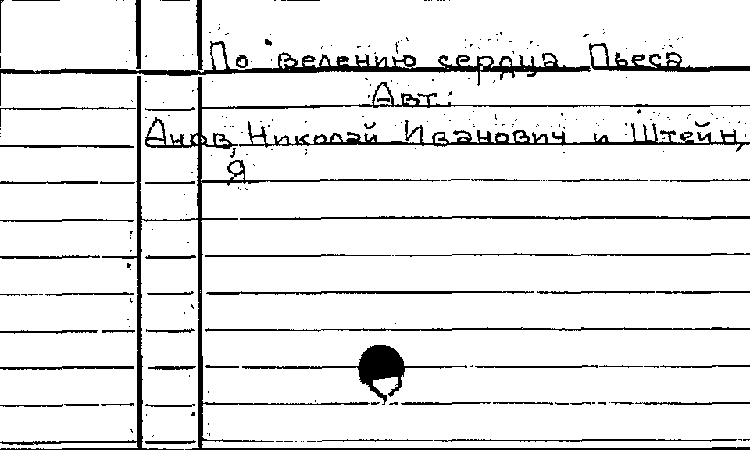 По велению сердца. Пьеса
Авт.:
Анов, Николай Иванович и Штейн,
Я